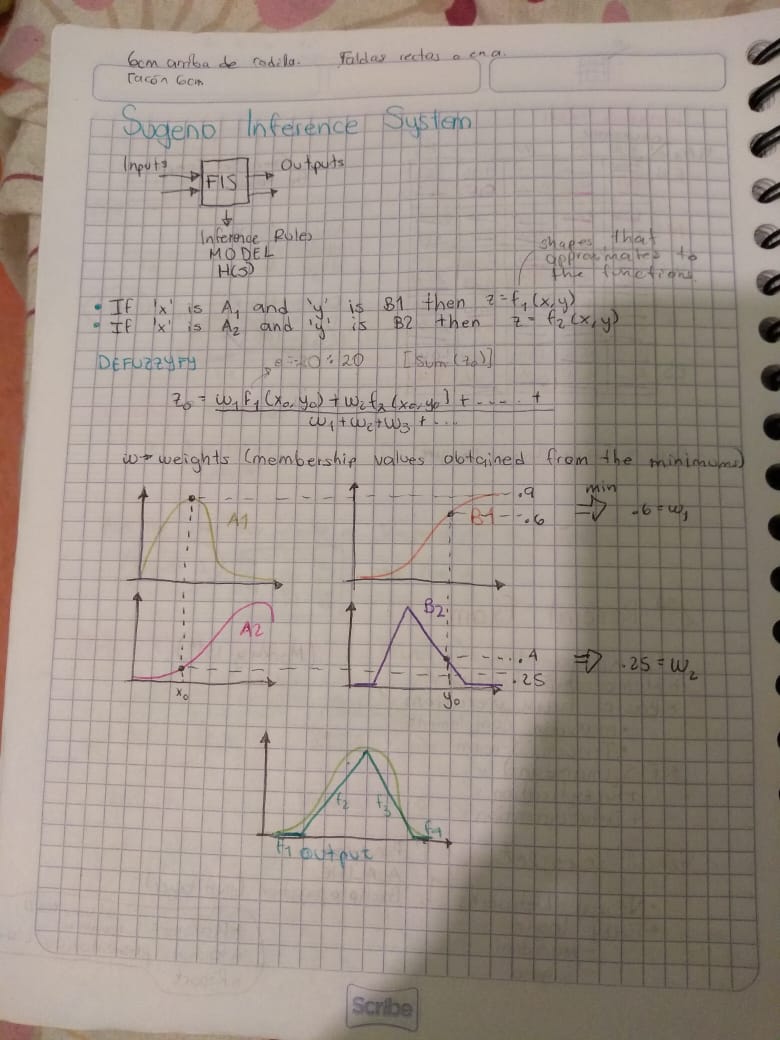 6cm arriba de rodilla. Faldas rectas o en a.
Tacón 6cm
Sugeno Inference System
Inputs
FIS
Outputs
Inference Rules
MODEL
H(s)
shapes that
approximates to
the functions
• If 'x' is A1 and 'y' is B1 then z=f1(x,y)
• If 'x' is A2 and 'y' is B2 then z=f2(x,y)
DEFUZZYFY
0:20 [sum(z0)]
z0 = w1f1(x0,y0)+w2f2(x0,y0)+.....+
w1+w2+w3+...
w→weights (membership values obtained from the minimums)
A1
B1
.9
.6
min
⇒ .6=w1
A2
x0
B2
.4
.25
y0
⇒ .25=w2
f2
f3
f1
f4
output
Scribe